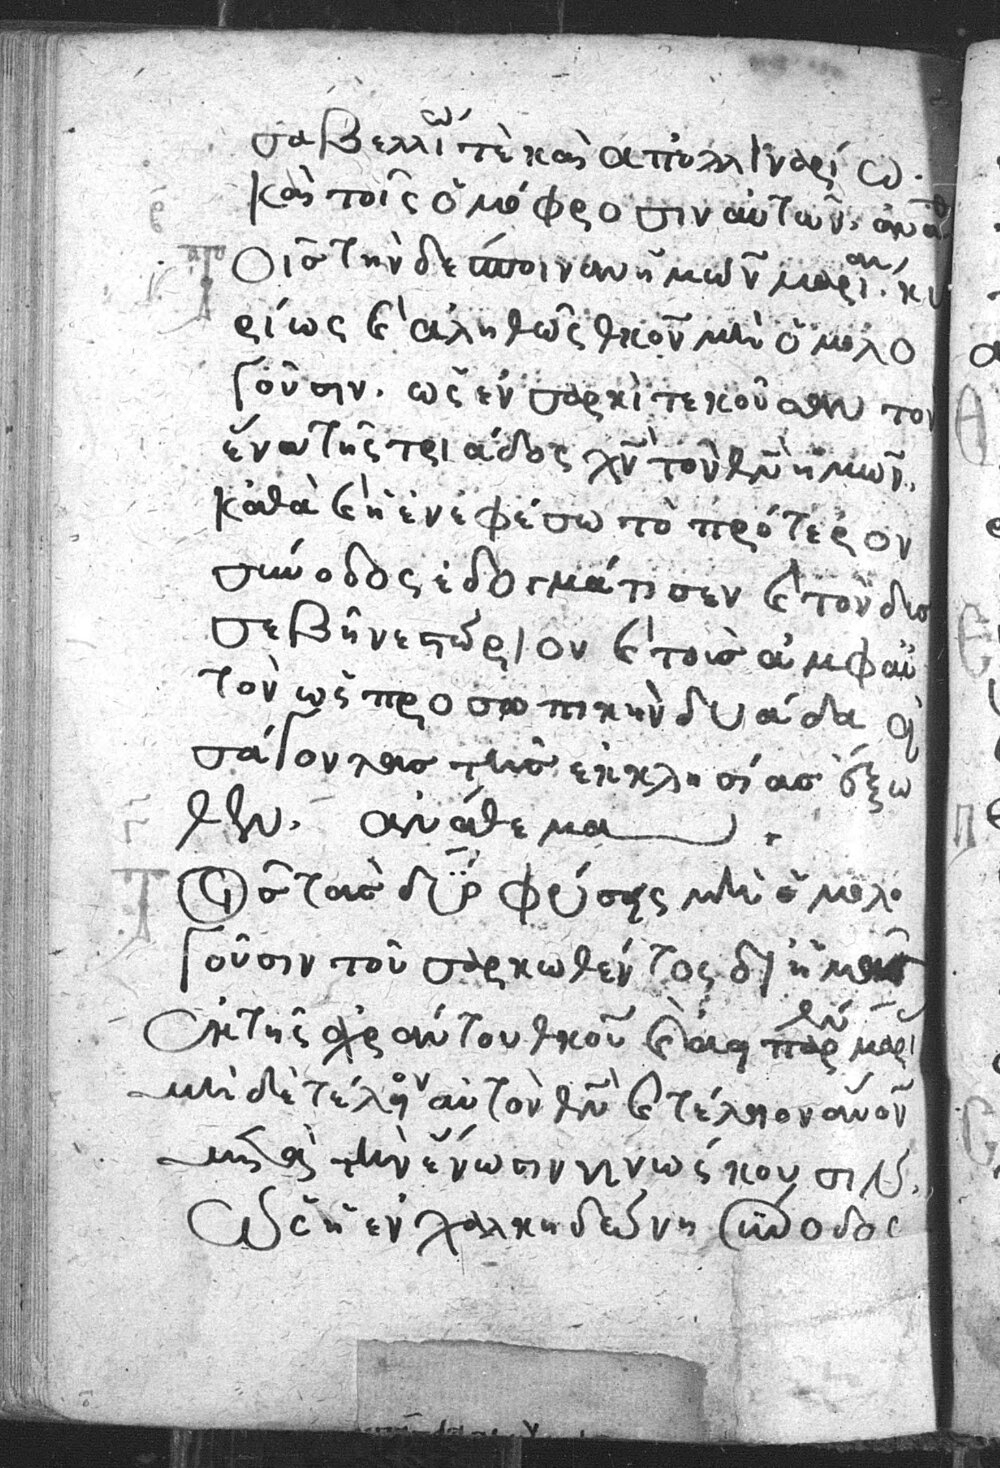 σαβελλίω τὲ καὶ ἀπολλιναρίω.
καὶ τοῖς ὁμόφροσιν αὐτῶν, ἀναθ
Τοῖς τὴν δέσποιναν ἡμῶν μαρίαν, κυ
ρίως καὶ ἀληθῶς θκον μὴ ὁμολο
γοῦσιν. ὡς ἐν σαρκὶ τεκοῦσαν τον
ἕνα τῆς τριάδος χν τὸν θν ἡμῶν,
καθὰ καὶ ἡ ἐν ἐφέσω τὸ πρότερον
σύνοδος ἐδογμάτισεν καὶ τὸν δυσ
σεβῆ νεστώριον καὶ τοῖς ἀμφ αὐ
τὸν ὡς προσωπικὴν δυάδα εἰ
σάγοντας τῆς ἐκκλησίας ἔξω
θεν. ἀνάθεμα
Τοῖς τὰς δύο φύσεις μὴ ὁμολο
γοῦσιν τοῦ σαρκωθέντος δι ἡμᾶς
ἐκ τῆς αὐτοῦ θκου καὶ ἀει παρθεν μαρι
μὴ δὲ τέλειον αὐτὸν θν καὶ τέλειον ανον
μετὰ τὴν ἕνωσιν γινώσκουσιν,
ὡς ἡ ἐν χαλκηδώνη σύνοδος